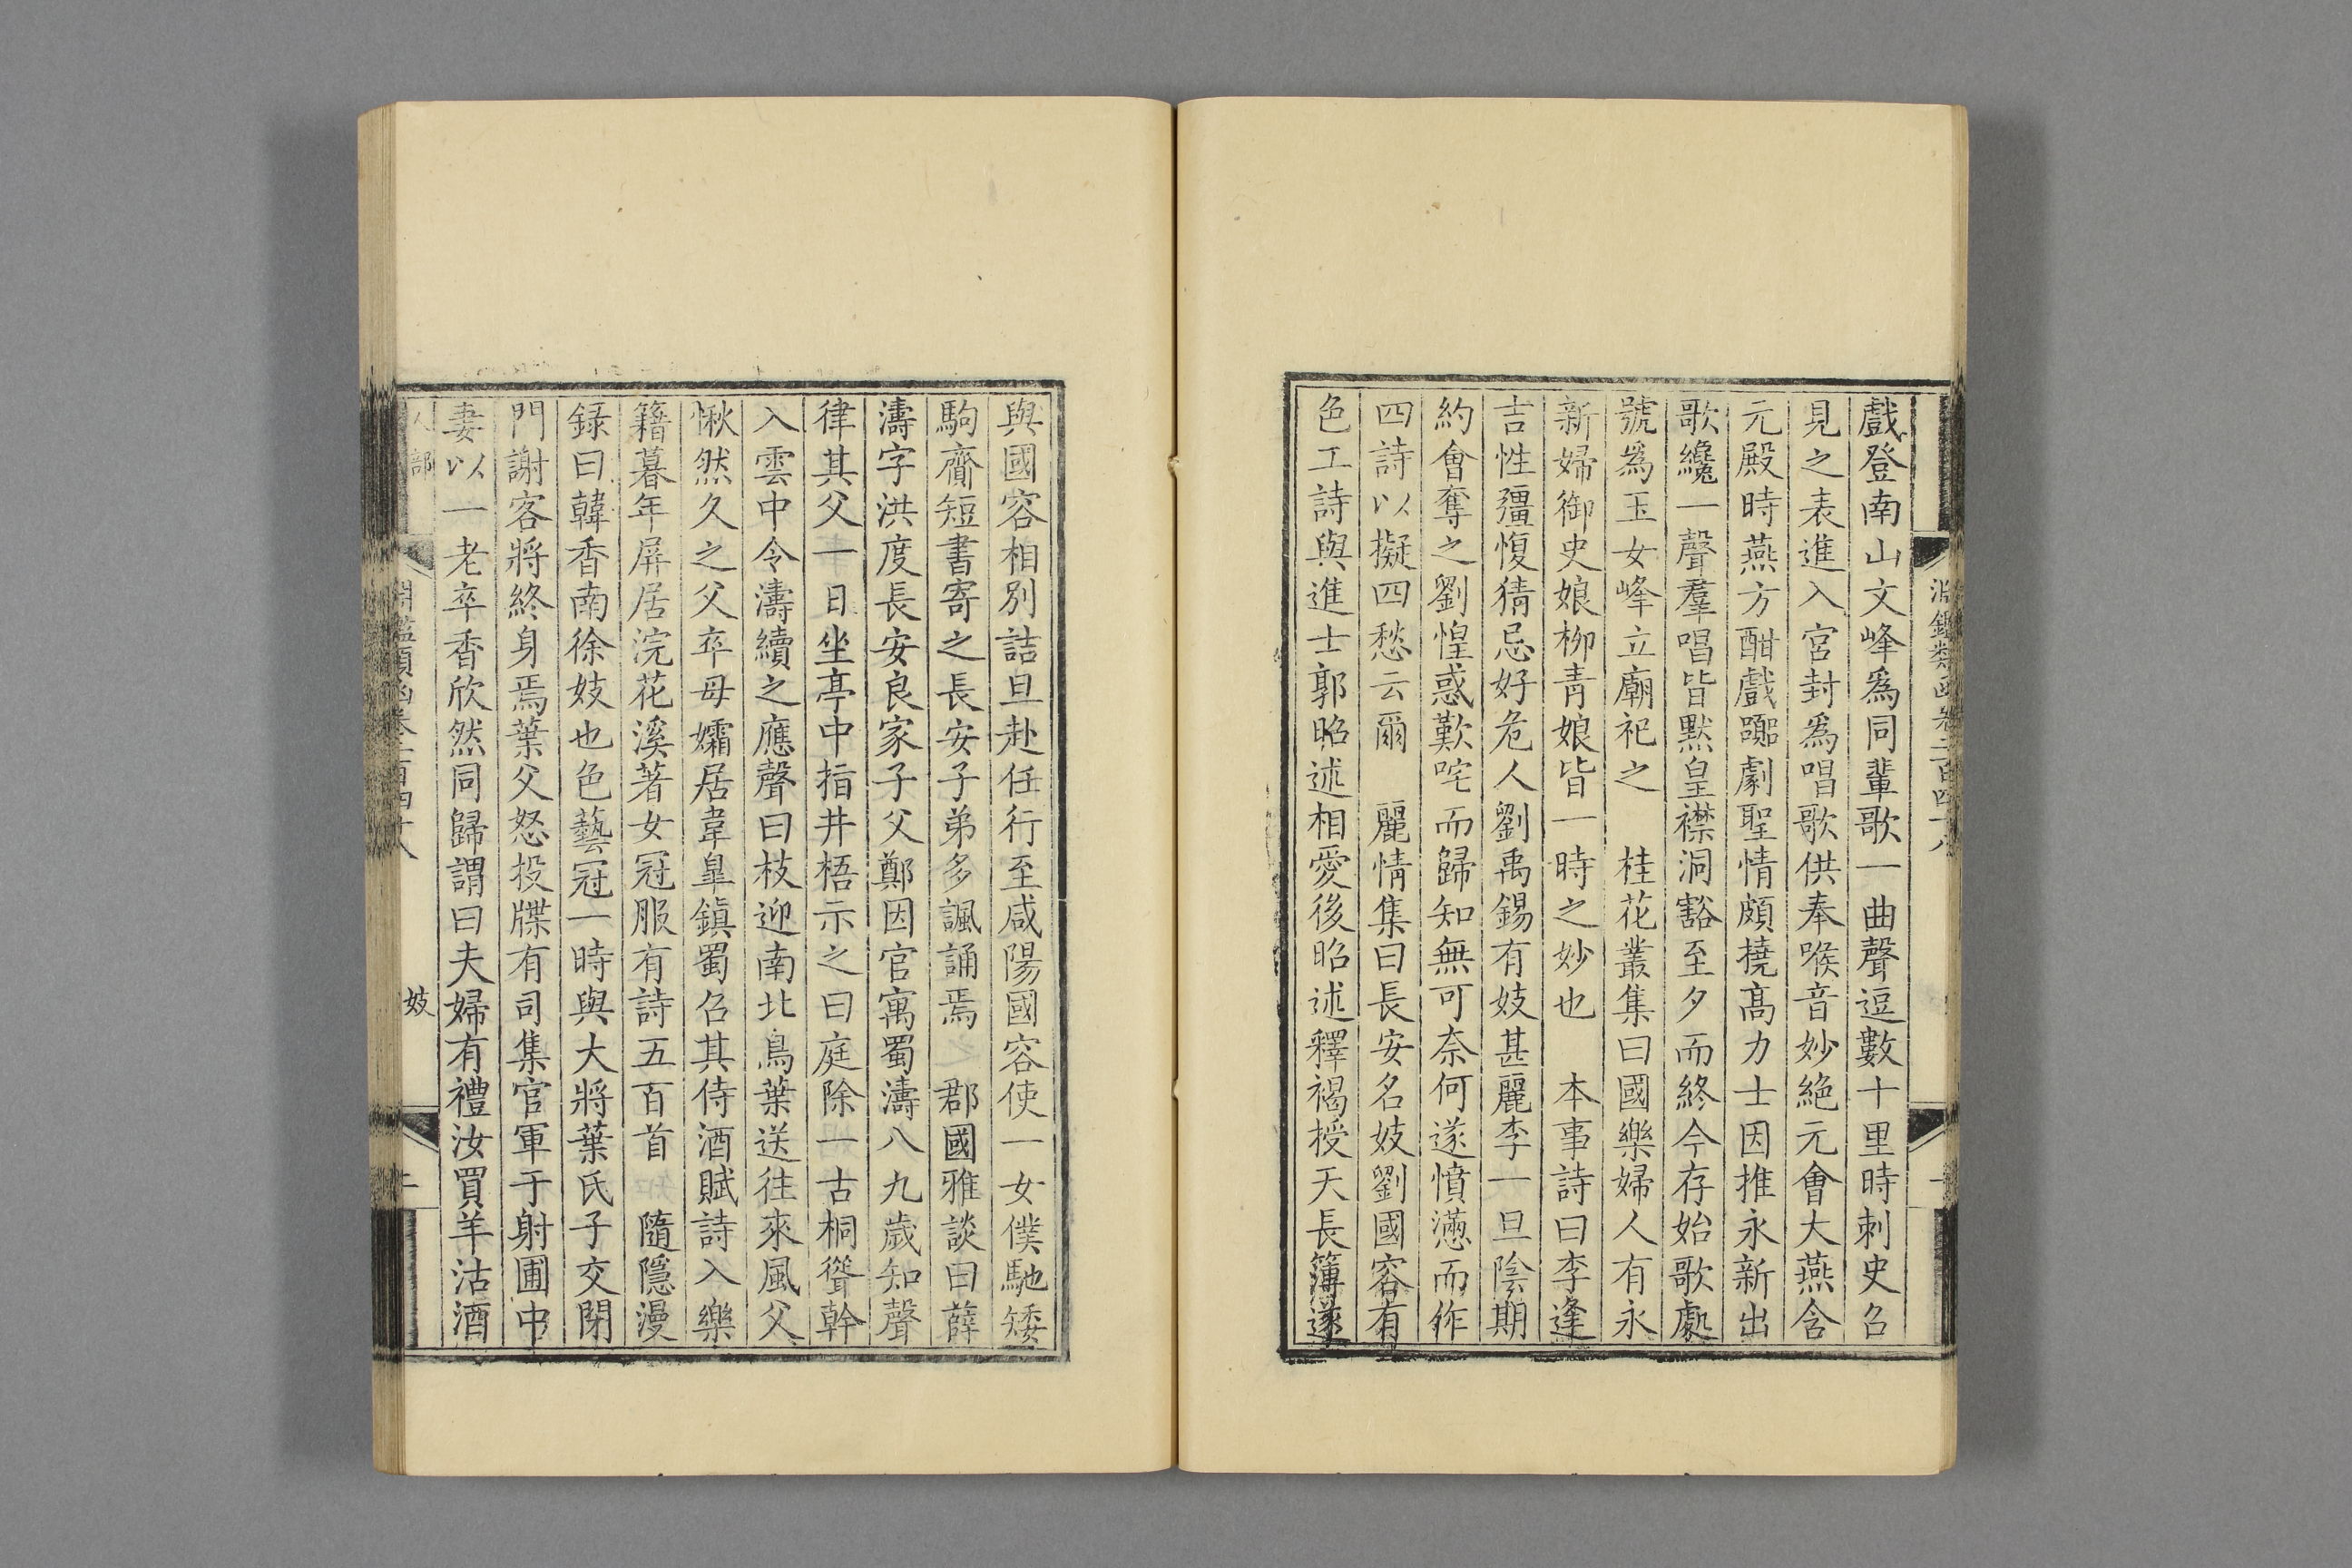 淵鑑類函卷二百四十八
戲登南山文峰爲同輩歌一曲聲逗數十里時刺史召
見之表進入宮封爲唱歌供奉喉音妙絶元會大燕含
元殿時燕方酣戲躑劇聖情頗撓高力士因推永新出
歌纔一聲羣唱皆默皇襟洞豁至夕而終今存始歌處
號爲玉女峰立廟祀之　桂花叢集曰國樂婦人有永
新婦御史娘柳青娘皆一時之妙也　本事詩曰李逢
吉性彊愎猜忌好危人劉禹錫有妓甚麗李一旦陰期
約會奪之劉惶惑歎咤而歸知無可奈何遂憤懣而作
四詩以擬四愁云爾　麗情集曰長安名妓劉國容有
色工詩與進士郭昭述相愛後昭述釋褐授天長簿遂
與國容相別詰旦赴任行至咸陽國容使一女僕馳矮
駒齎短書寄之長安子弟多諷誦焉　郡國雅談曰薛
濤字洪度長安良家子父鄭因官寓蜀濤八九歲知聲
律其父一日坐亭中指井梧示之曰庭除一古桐聳幹
入雲中令濤續之應聲曰枝迎南北鳥葉送往來風父
愀然久之父卒母孀居韋臯鎮蜀召其侍酒賦詩入樂
籍暮年屏居浣花溪著女冠服有詩五百首　隨隱漫
録曰韓香南徐妓也色藝冠一時與大將葉氏子交閉
門謝客將終身焉葉父怒投牒有司集官軍于射圃中
妻以一老卒香欣然同歸謂曰夫婦有禮汝買羊沽酒
人部　淵鑑類函卷二百四十八　妓　二